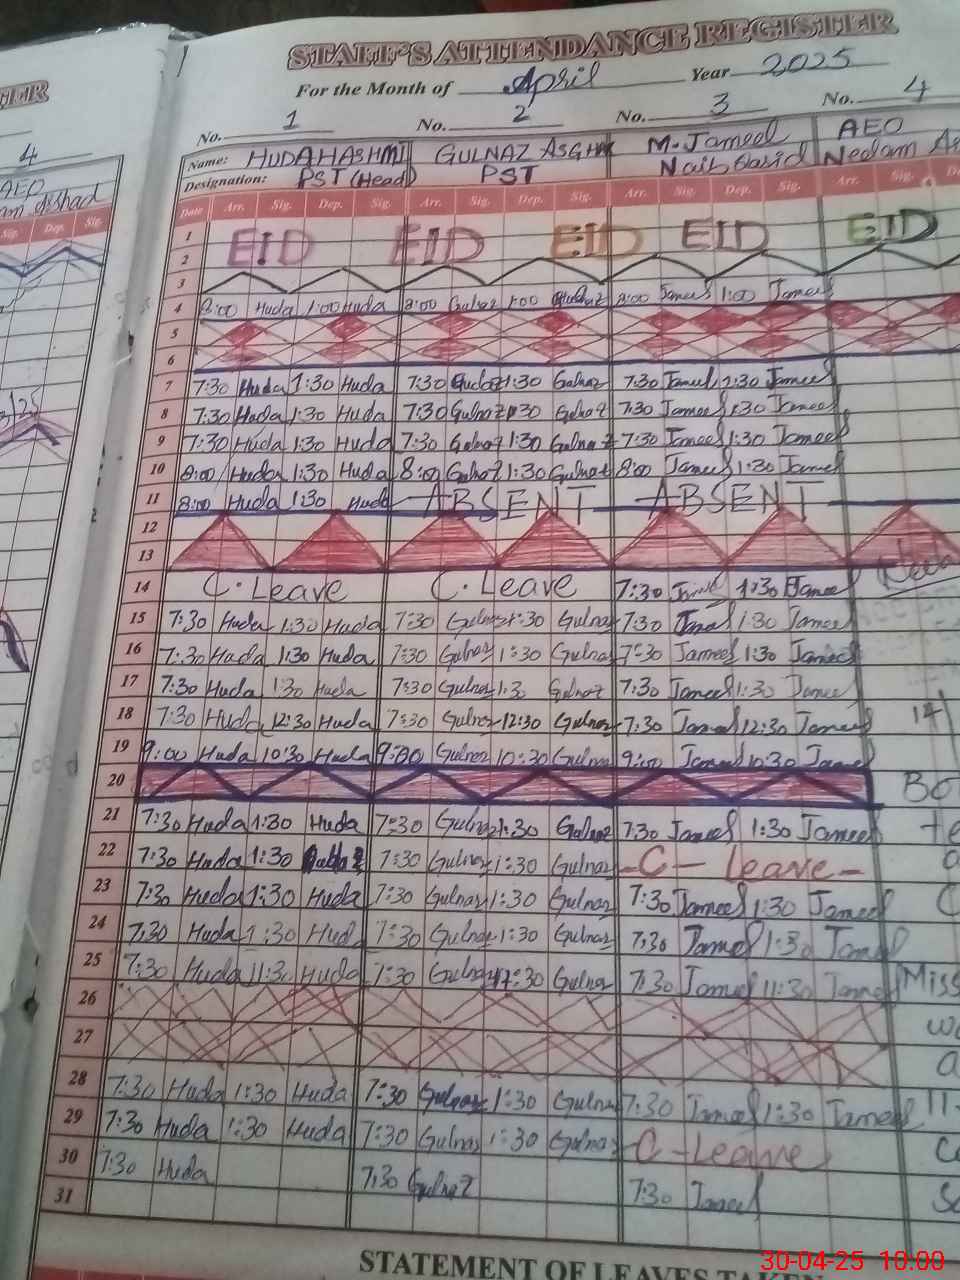 STAFF'S ATTENDANCE REGISTER
For the Month of April Year 2025
No. 1 No. 2 No. 3 No. 4
Name: HUDA HASHMI GULNAZ ASGHAR M. Jameel AEO
Designation: PST (Head) PST Naib Qasid
Date Arr. Sig. Dep. Sig. Arr. Sig. Dep. Sig. Arr. Sig. Dep. Sig. Arr. Sig.
1 EID EID EID EID EID
2
3
4 8:00 Huda 1:00 Huda 8:00 Gulnaz 1:00 Gulnaz 8:00 Jameel 1:00 Jameel
5
6
7 7:30 Huda 1:30 Huda 7:30 Gulnaz 1:30 Gulnaz 7:30 Jameel 1:30 Jameel
8 7:30 Huda 1:30 Huda 7:30 Gulnaz 1:30 Gulnaz 7:30 Jameel 1:30 Jameel
9 7:30 Huda 1:30 Huda 7:30 Gulnaz 1:30 Gulnaz 7:30 Jameel 1:30 Jameel
10 8:00 Huda 1:30 Huda 8:00 Gulnaz 1:30 Gulnaz 8:00 Jameel 1:30 Jameel
11 8:00 Huda 1:30 Huda ABSENT ABSENT
12
13
14 C. Leave C. Leave 7:30 Jameel 1:30 Jameel
15 7:30 Huda 1:30 Huda 7:30 Gulnaz 1:30 Gulnaz 7:30 Jameel 1:30 Jameel
16 7:30 Huda 1:30 Huda 7:30 Gulnaz 1:30 Gulnaz 7:30 Jameel 1:30 Jameel
17 7:30 Huda 1:30 Huda 7:30 Gulnaz 1:30 Gulnaz 7:30 Jameel 1:30 Jameel
18 7:30 Huda 12:30 Huda 7:30 Gulnaz 12:30 Gulnaz 7:30 Jameel 12:30 Jameel 14
19 9:00 Huda 10:30 Huda 9:00 Gulnaz 10:30 Gulnaz 9:00 Jameel 10:30 Jameel
20
21 7:30 Huda 1:30 Huda 7:30 Gulnaz 1:30 Gulnaz 7:30 Jameel 1:30 Jameel
22 7:30 Huda 1:30 7:30 Gulnaz 1:30 Gulnaz - C - Leave -
23 7:30 Huda 1:30 Huda 7:30 Gulnaz 1:30 Gulnaz 7:30 Jameel 1:30 Jameel
24 7:30 Huda 1:30 Huda 7:30 Gulnaz 1:30 Gulnaz 7:30 Jameel 1:30 Jameel
25 7:30 Huda 11:30 Huda 7:30 Gulnaz 11:30 Gulnaz 7:30 Jameel 11:30 Jameel Miss
26
27
28 7:30 Huda 1:30 Huda 7:30 Gulnaz 1:30 Gulnaz 7:30 Jameel 1:30 Jameel
29 7:30 Huda 1:30 Huda 7:30 Gulnaz 1:30 Gulnaz - C - Leave
30 7:30 Huda 7:30 Gulnaz 7:30 Jameel
31
STATEMENT OF LEAVES TAKEN
30-04-25 10:00